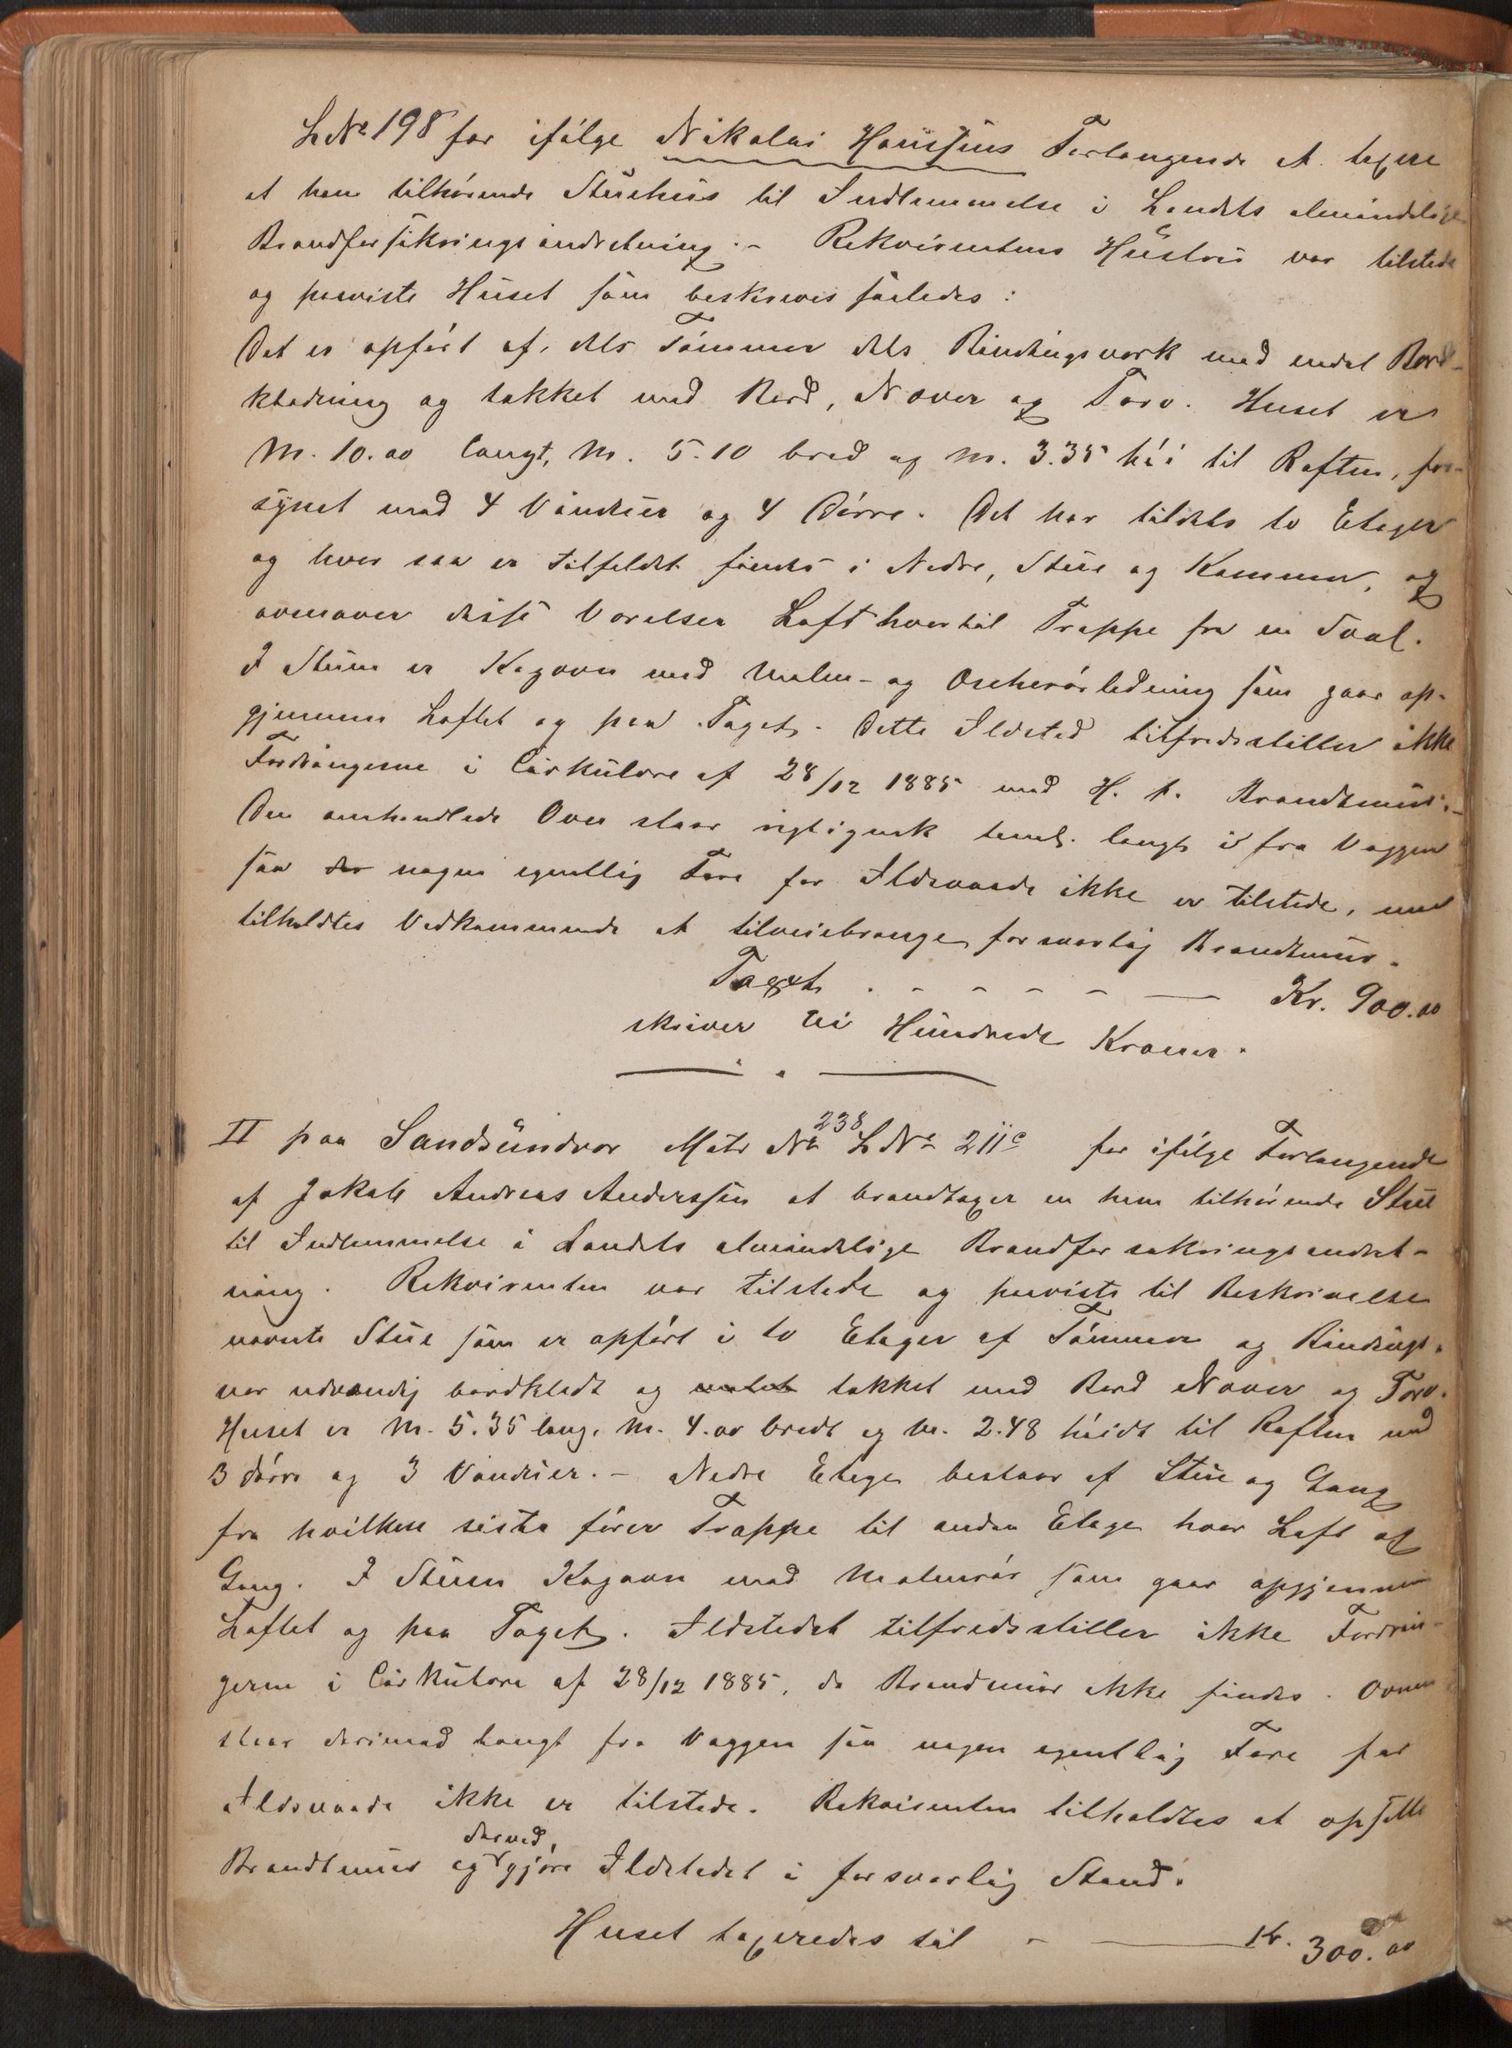 LNr 198 for ifølge Nikolai Hanssens Forlangende at taxere
et ham tilhørende Stuehus til Indlemmelse i Landets almindelige
Brandforsikringsindretning. – Rekvirentens Hustru var tilstede
og paaviste Huset som beskrives saaledes:
Det er opført af, dels Tømmer dels Bindingsverk med endel Bord-
klædning og tækket med Bord, Næver og Torv. Huset er
M. 10.00 langt, M. 5.10 bred og M. 3.35 høi til Raften, for-
synet med 4 Vinduer og 4 Dørre. Det har tildels to Etager
og hvor saa er tilfældet findes i Nedre, Stue og Kammer, og
ovenover disse Værelser Loft hvortil Trappe fra en Sval.
I Stuen er Kogovn med Malm- og Oscherørledning som gaar op-
gjennem Loftet og paa Taget. Dette Ildsted tilfredsstiller ikke
Fordringerne i Cirkulære af 28/12 1885 med H. t. Brandtmur.–
Den omhandlede Ovn staar rigtignok teml. langt i fra Væggen
saa der nogen egentlig Fare for Ildsvaade ikke er tilstede, men
tilholdtes Vedkommende at tilveiebringe forsvarlig Brandtmur.
Taxt . - - - - — Kr. 900.00
skriver Ni Hundrede Kroner.
II paa Sandsundvær Matr Nr 238 LNr 211c for ifølge Forlangende
af Jakob Andreas Anderssen at brandtaxere en ham tilhørende Stue
til Indlemmelse i Landets almindelige Brandforsakringsindret-
ning. Rekvirenten var tilstede og paaviste til Beskrivelse
nævnte Stue som er opført i to Etager af Tømmer og Bindings-
ver udvændig bordklædt og malet tækket med Bord Næver og Torv.
Huset er M. 5.35 lang, M. 4.00 bredt og M. 2.48 høidt til Raften med
3 Dørre og 3 Vinduer. – Nedre Etage bestaar af Stue og Gang
fra hvilken sidste fører Trappe til anden Etage hvor Loft og
Gang. I Stuen Kogovn med Malmrør som gaar opgjennem
Loftet og paa Taget. Ildstedet tilfredsstiller ikke Fordrin-
gerne i Cirkulære af 28/12 1885, da Brandmur ikke findes. Ovnen
staar derimod langt fra Væggen saa nogen egentlig Fare for
Ildsvaade ikke er tilstede. Rekvirenten tilholdtes at opsætte
Brandtmur og derved gjøre Ildstedet i forsvarlig Stand.
Huset taxeredes til - — Kr. 300.00